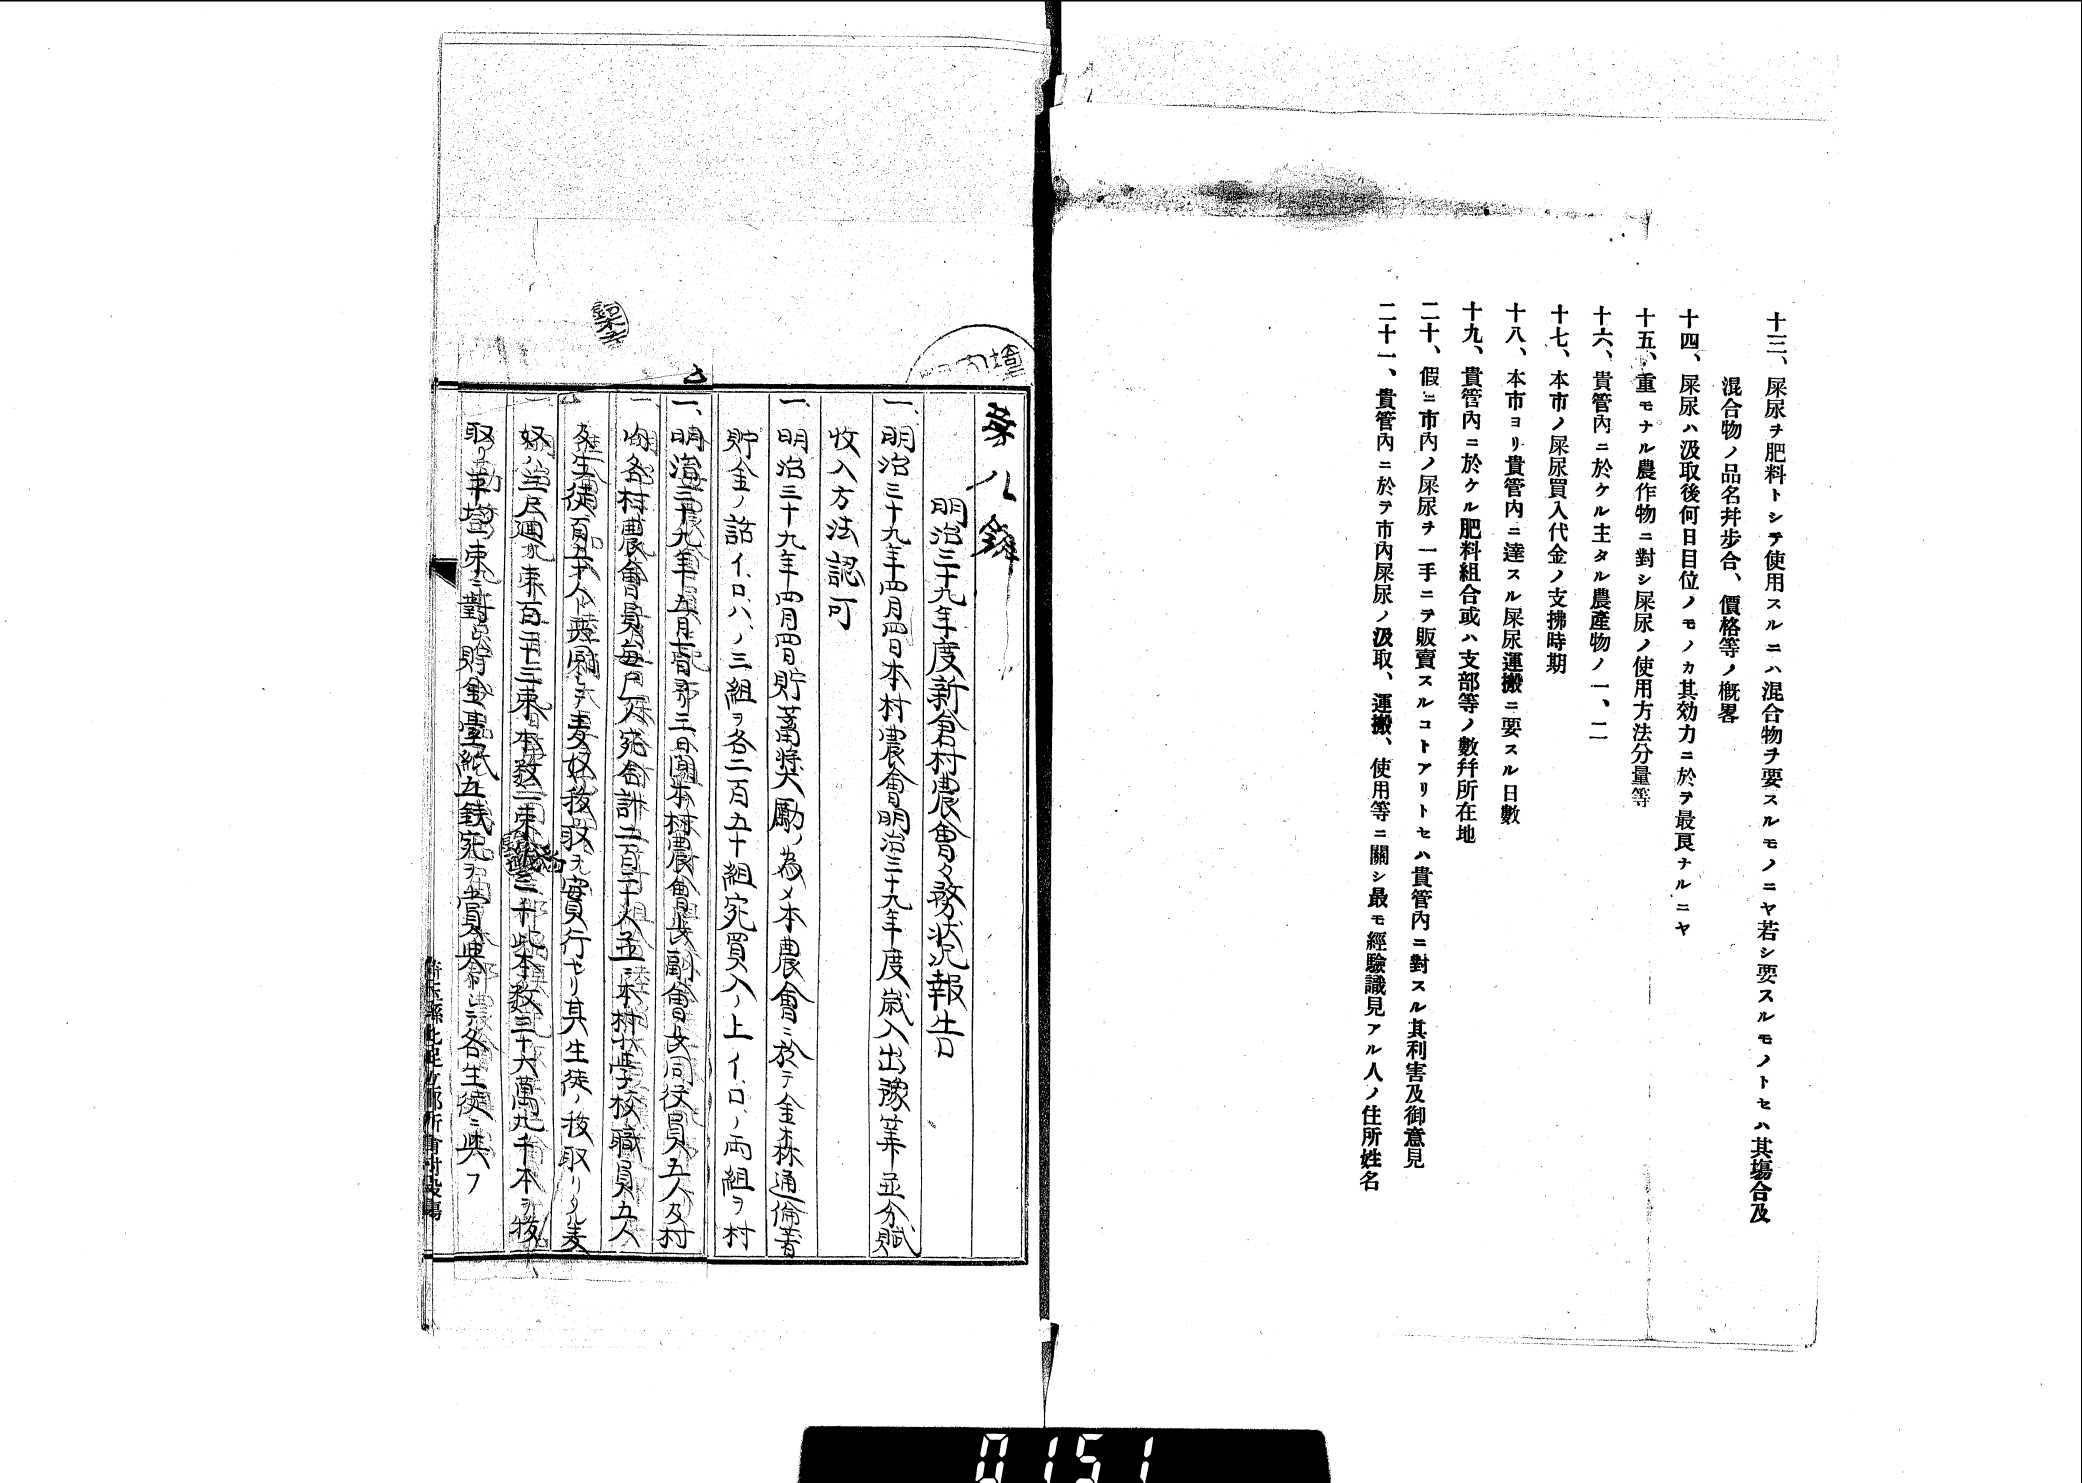 十三、屎尿ヲ肥料トシテ使用スルニハ混合物ヲ要スルモノニヤ若シ要スルモノトセハ其塲合及
混合物ノ品名幷步合、價格等ノ槪畧
十四、屎尿ハ汲取後何日目位ノモノカ其効力ニ於テ最良ナルニヤ
十五、重モナル農作物ニ對シ屎尿ノ使用方法分量等
十六、貴管內ニ於ケル主タル農產物ノ一、二
十七、本市ノ屎尿買入代金ノ支拂時期
十八、本市ヨリ貴管內ニ達スル屎尿運搬ニ要スル日數
十九、貴管內ニ於ケル肥料組合或ハ支部等ノ數幷所在地
二十、假ニ市內ノ屎尿ヲ一手ニテ販賣スルコトアリトセハ貴管內ニ對スル其利害及御意見
二十一、貴管內ニ於テ市內屎尿ノ汲取、運搬、使用等ニ關シ最モ經驗識見アル人ノ住所姓名
第八號
明治三十九年度新倉村農會々務狀況報告
一、明治三十九年四月四日本村農會明治三十九年度歲入出豫算並分賦
收入方法認可
一、明治三十九年四月四日貯蓄奬勵ノ為メ本農會ニ於テ金森通倫著
貯金ノ話イ、ロ、ハ、ノ三組ヲ各二百五十組宛買入ノ上イ、ロ、ノ両組ヲ村
內各村農會員每戶一人宛合計二百三十人並ニ本村小學校職員五人
一、明治三十九年五月 三日間本村農會長副會長同役員五人及村
及生徒百五十人 麥奴拔取ヲ實行セリ其生徒ノ拔取リタル麥
奴ハ 束百二十三束本数一束 三千 本数三十六萬九千本ヲ拔
取リ 壹束ニ對シ貯金臺紙五錢宛ヲ賞與トシテ各生徒ニ與フ
0151